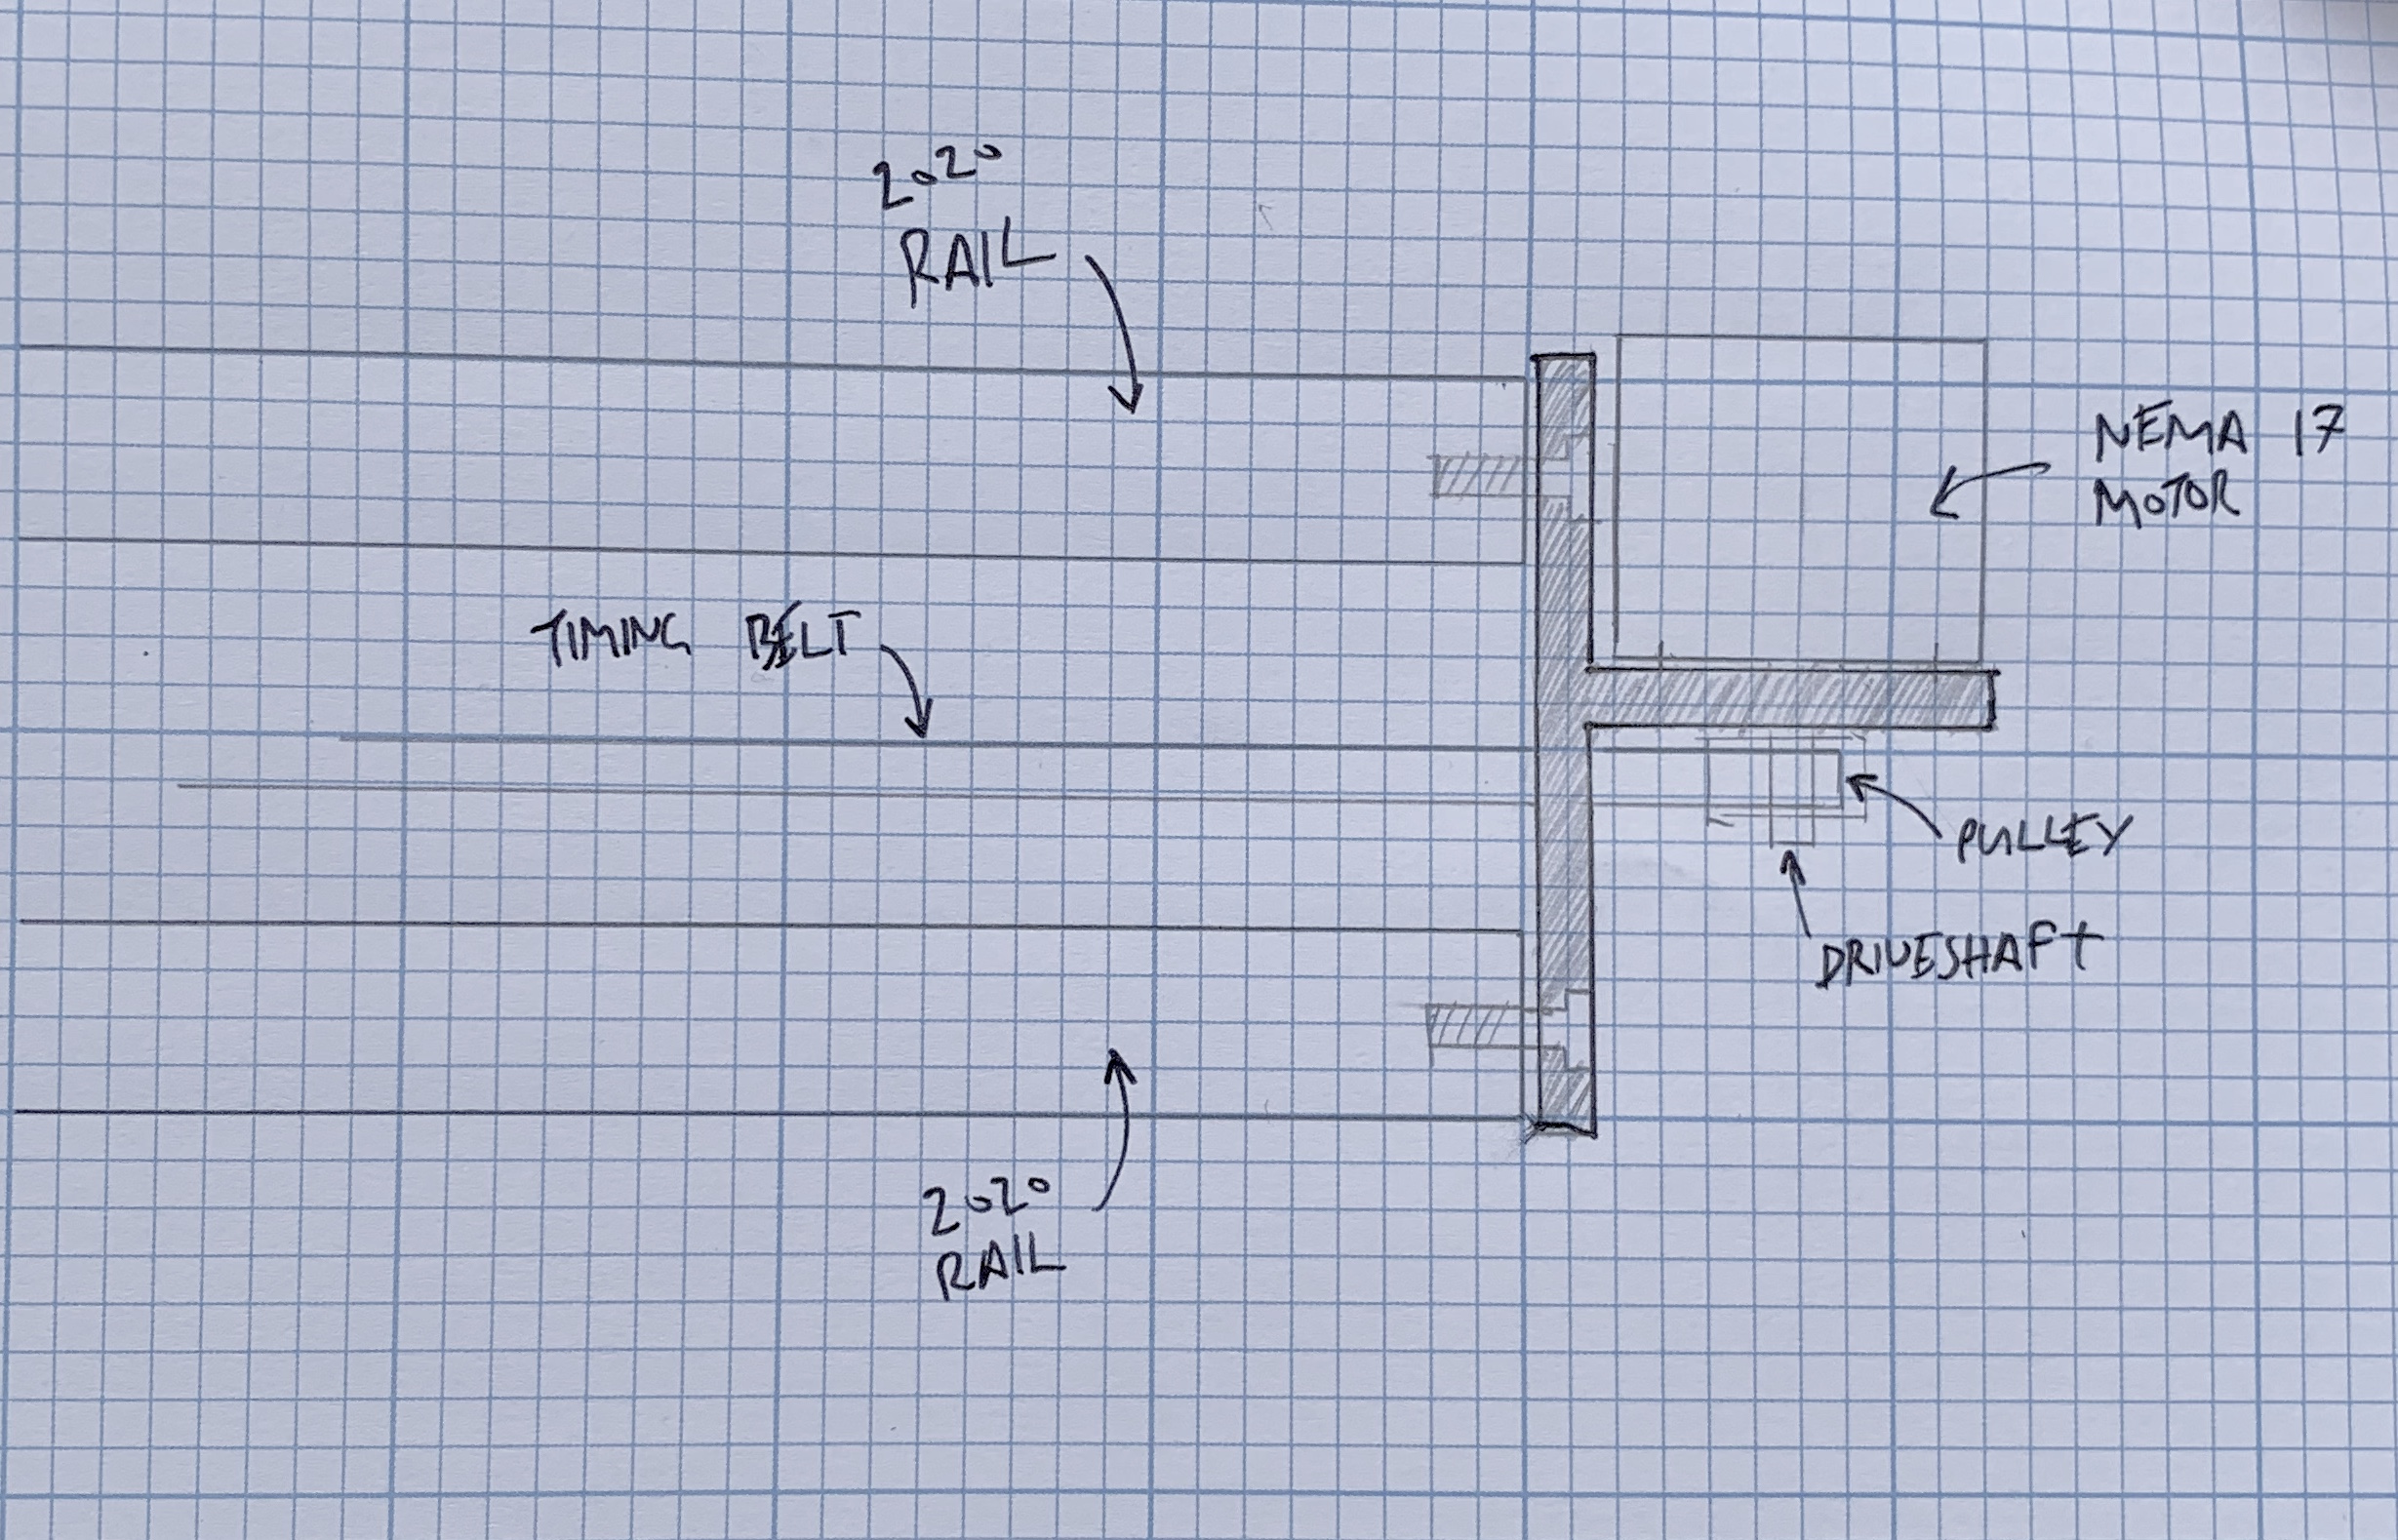 2020
RAIL
NEMA 17
MOTOR
TIMING BELT
PULLEY
DRIVESHAFt
2020
RAIL